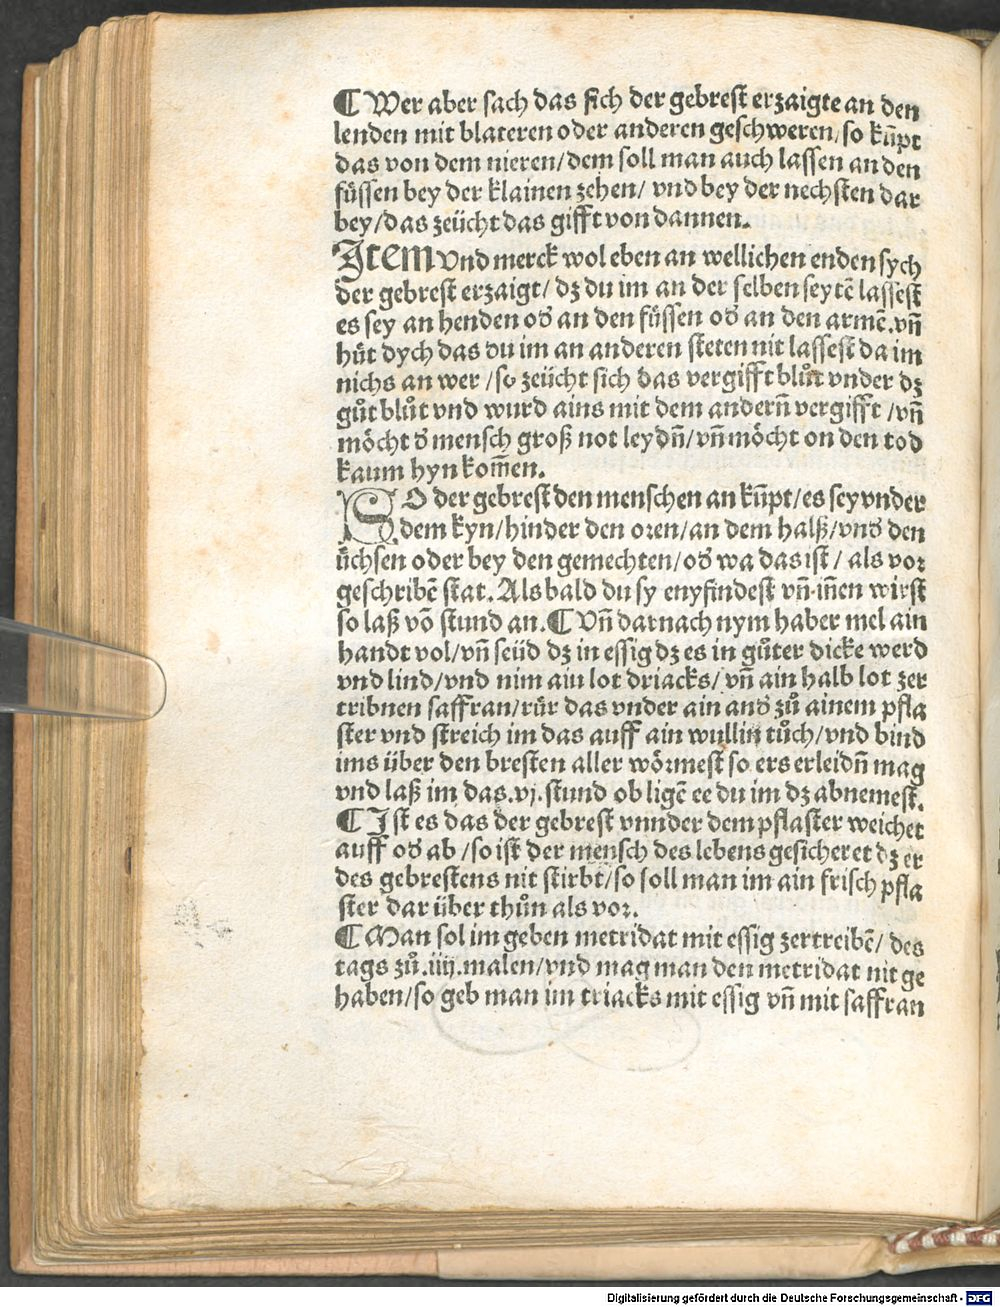 ¶ Wer aber sach das sich der gebrest erzaigte an den
lenden mit blateren oder anderen geschweren/ so kūpt
das von dem nieren/ dem soll man auch lassen an den
füssen bey der klainen zehen/ vnd bey der nechsten dar
bey/ das zeücht das gifft von dannen.
Item vnd merck wol eben an wellichen enden sych
der gebrest erzaigt/ dz du im an der selben seytē lassest
es sey an henden od̕ an den füssen od̕ an den armē. vn̄
hüt dych das du im an anderen steten nit lassest da im
nichs an wer / so zeücht sich das vergifft blůt vnder dz
gůt blůt vnd wurd ains mit dem andern̄ vergifft / vn̄
möcht d̕ mensch groß not leydn̄/ vn̄ möcht on den tod
kaum hyn kom̄en.
SO der gebrest den menschen an kūpt/ es sey vnder
dem kyn/ hinder den oren/ an dem halß/ vnd̕ den
üchsen oder bey den gemechten/ od̕ wa das ist / als vor
geschribē stat. Als bald du sy enyfindest vn̄ in̄en wirst
so laß vō stund an. ¶ Vn̄ darnach nym haber mel ain
handt vol/ vn̄ seüd dz in essig dz es in gůter dicke werd
vnd lind/ vnd nim ain lot driacks/ vn̄ ain halb lot zer
tribnen saffran/ rür das vnder ain and̕ zů ainem pfla
ster vnd streich im das auff ain wullin tůch/ vnd bind
ims über den bresten aller wörmest so ers erleidn̄ mag
vnd laß im das .vj. stund ob ligē ee du im dz abnemest.
¶ Ist es das der gebrest vnnder dem pflaster weichet
auff od̕ ab / so ist der mensch des lebens gesicheret dz er
des gebrestens nit stirbt/ so soll man im ain frisch pfla
ster dar über thůn als vor.
¶ Man sol im geben metridat mit essig zertreibē/ des
tags zů .iiij. malen/ vnd mag man den metridat nit ge
haben/ so geb man im triacks mit essig vn̄ mit saffran
Digitalisierung gefördert durch die Deutsche Forschungsgemeinschaft - DFG